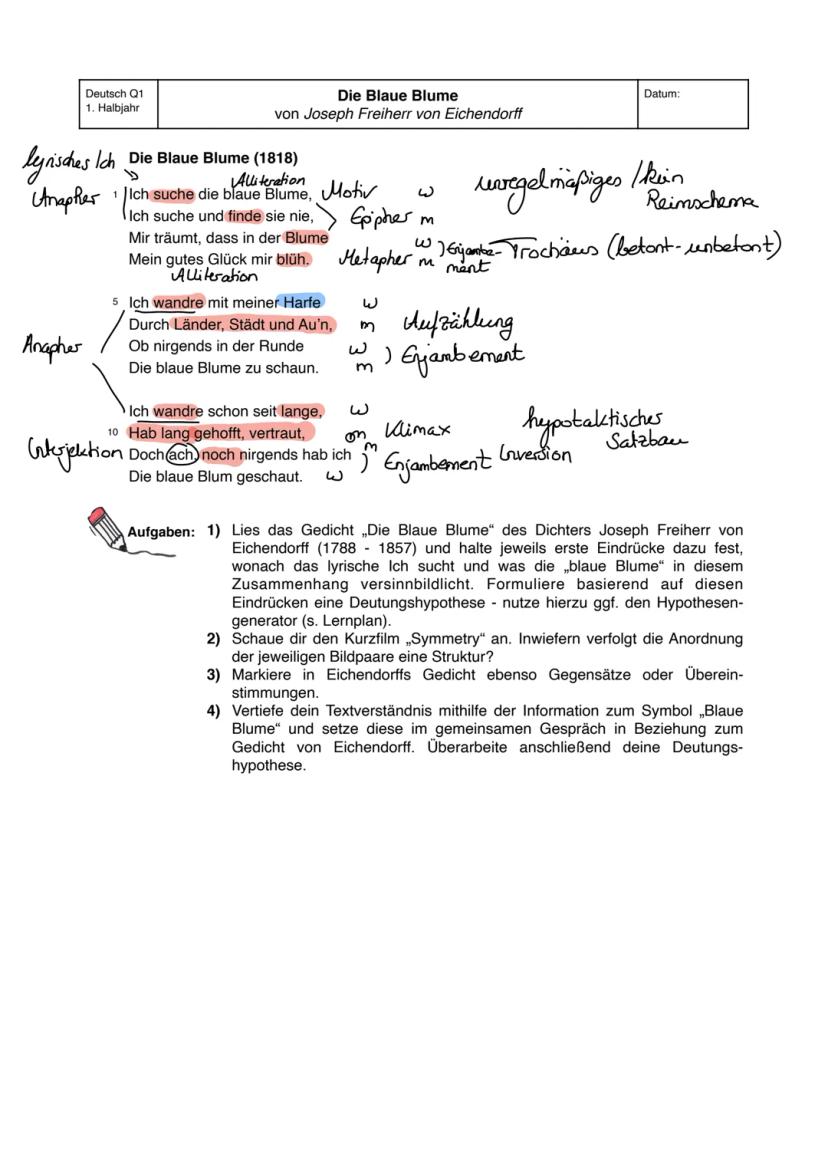 Deutsch Q1
1. Halbjahr
Die Blaue Blume
von Joseph Freiherr von Eichendorff
Datum:
lyrisches Ich
Die Blaue Blume (1818)
Alliteration
unregelmäßiges / kein
Reimschema
Anapher
1 Ich suche die blaue Blume, Motiv w
Ich suche und finde sie nie, Epipher m
Mir träumt, dass in der Blume w ) Enjambe-
ment
Trochäus (betont-unbetont)
Mein gutes Glück mir blüh. Metapher m
Alliteration
5 Ich wandre mit meiner Harfe w
Durch Länder, Städt und Au'n, m Aufzählung
Anapher
Ob nirgends in der Runde w
) Enjambement
Die blaue Blume zu schaun. m
Ich wandre schon seit lange, w
hypotaktischer
Satzbau
10 Hab lang gehofft, vertraut, m Klimax
Interjektion Doch ach, noch nirgends hab ich m ) Enjambement Inversion
Die blaue Blum geschaut. w
Aufgaben: 1) Lies das Gedicht „Die Blaue Blume“ des Dichters Joseph Freiherr von
Eichendorff (1788 - 1857) und halte jeweils erste Eindrücke dazu fest,
wonach das lyrische Ich sucht und was die „blaue Blume“ in diesem
Zusammenhang versinnbildlicht. Formuliere basierend auf diesen
Eindrücken eine Deutungshypothese - nutze hierzu ggf. den Hypothesen-
generator (s. Lernplan).
2) Schaue dir den Kurzfilm „Symmetry“ an. Inwiefern verfolgt die Anordnung
der jeweiligen Bildpaare eine Struktur?
3) Markiere in Eichendorffs Gedicht ebenso Gegensätze oder Überein-
stimmungen.
4) Vertiefe dein Textverständnis mithilfe der Information zum Symbol „Blaue
Blume“ und setze diese im gemeinsamen Gespräch in Beziehung zum
Gedicht von Eichendorff. Überarbeite anschließend deine Deutungs-
hypothese.